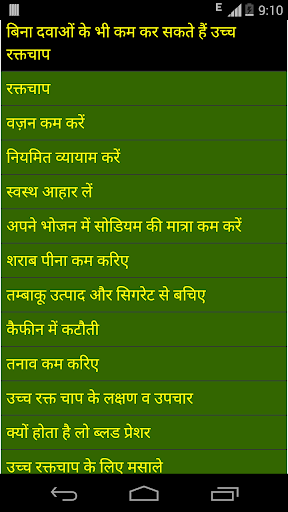 E 9:10
बिना दवाओं के भी कम कर सकते हैं उच्च
रक्तचाप
रक्तचाप
वज़न कम करें
नियमित व्यायाम करें
स्वस्थ आहार लें
अपने भोजन में सोडियम की मात्रा कम करें
शराब पीना कम करिए
तम्बाकू उत्पाद और सिगरेट से बचिए
कैफीन में कटौती
तनाव कम करिए
उच्च रक्त चाप के लक्षण व उपचार
क्यों होता है लो ब्लड प्रेशर
उच्च रक्तचाप के लिए मसाले